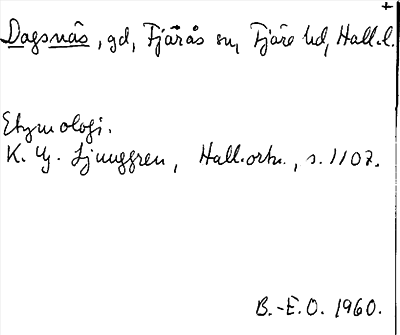 +
Dagsnäs, gd, Fjärås sn, Fjäre hd, Hall.l.
Etymologi.
K. G. Ljunggren, Hall.ortn., s. 1107.
B.-E.O. 1960.